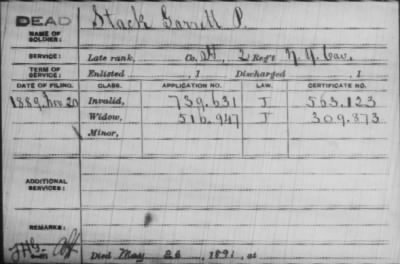 DEAD
NAME OF SOLDIER: Stack Garrett P.
SERVICE: Late rank, Co. H, 2 Reg't N.Y. Cav.
TERM OF SERVICE: Enlisted , 1 Discharged , 1
DATE OF FILING. CLASS. APPLICATION NO. LAW. CERTIFICATE NO.
1889, Nov. 20 Invalid, 739.631 J 563.123
Widow, 516.947 J 309.873
Minor,
ADDITIONAL SERVICES:
REMARKS:
Died May 26, 1891, at